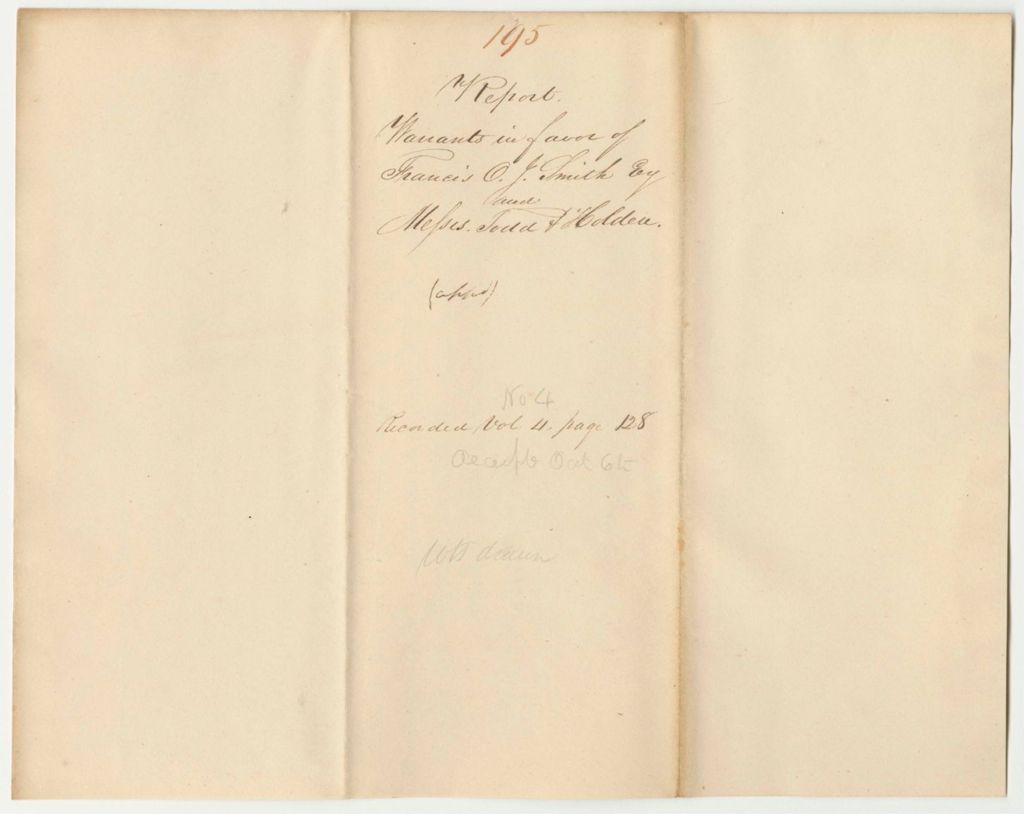 195
Report.
Warrants in favor of
Francis O. J. Smith Esq
and
Messrs. Todd & Holden.
(appd)
No 4
Recorded, Vol 4. page 128
Oct 6th
Wt drawn